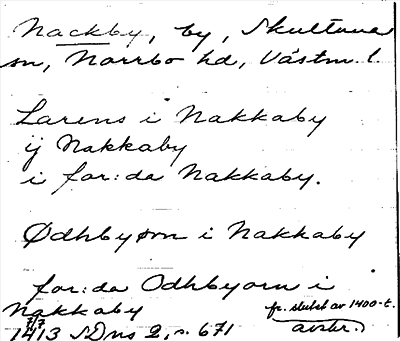 Nackby, by, Skultuna
sn, Norrbo hd, Västm. l.
Larens i Nakkaby
ij Nakkaby
i for:da Nakkaby.
Ødhbyørn i Nakkaby
for:da Odhbyorn i
Nakkaby
fr. slutet av 1400-t.
7/7 1413 SDns 2, s. 671
avskr.)